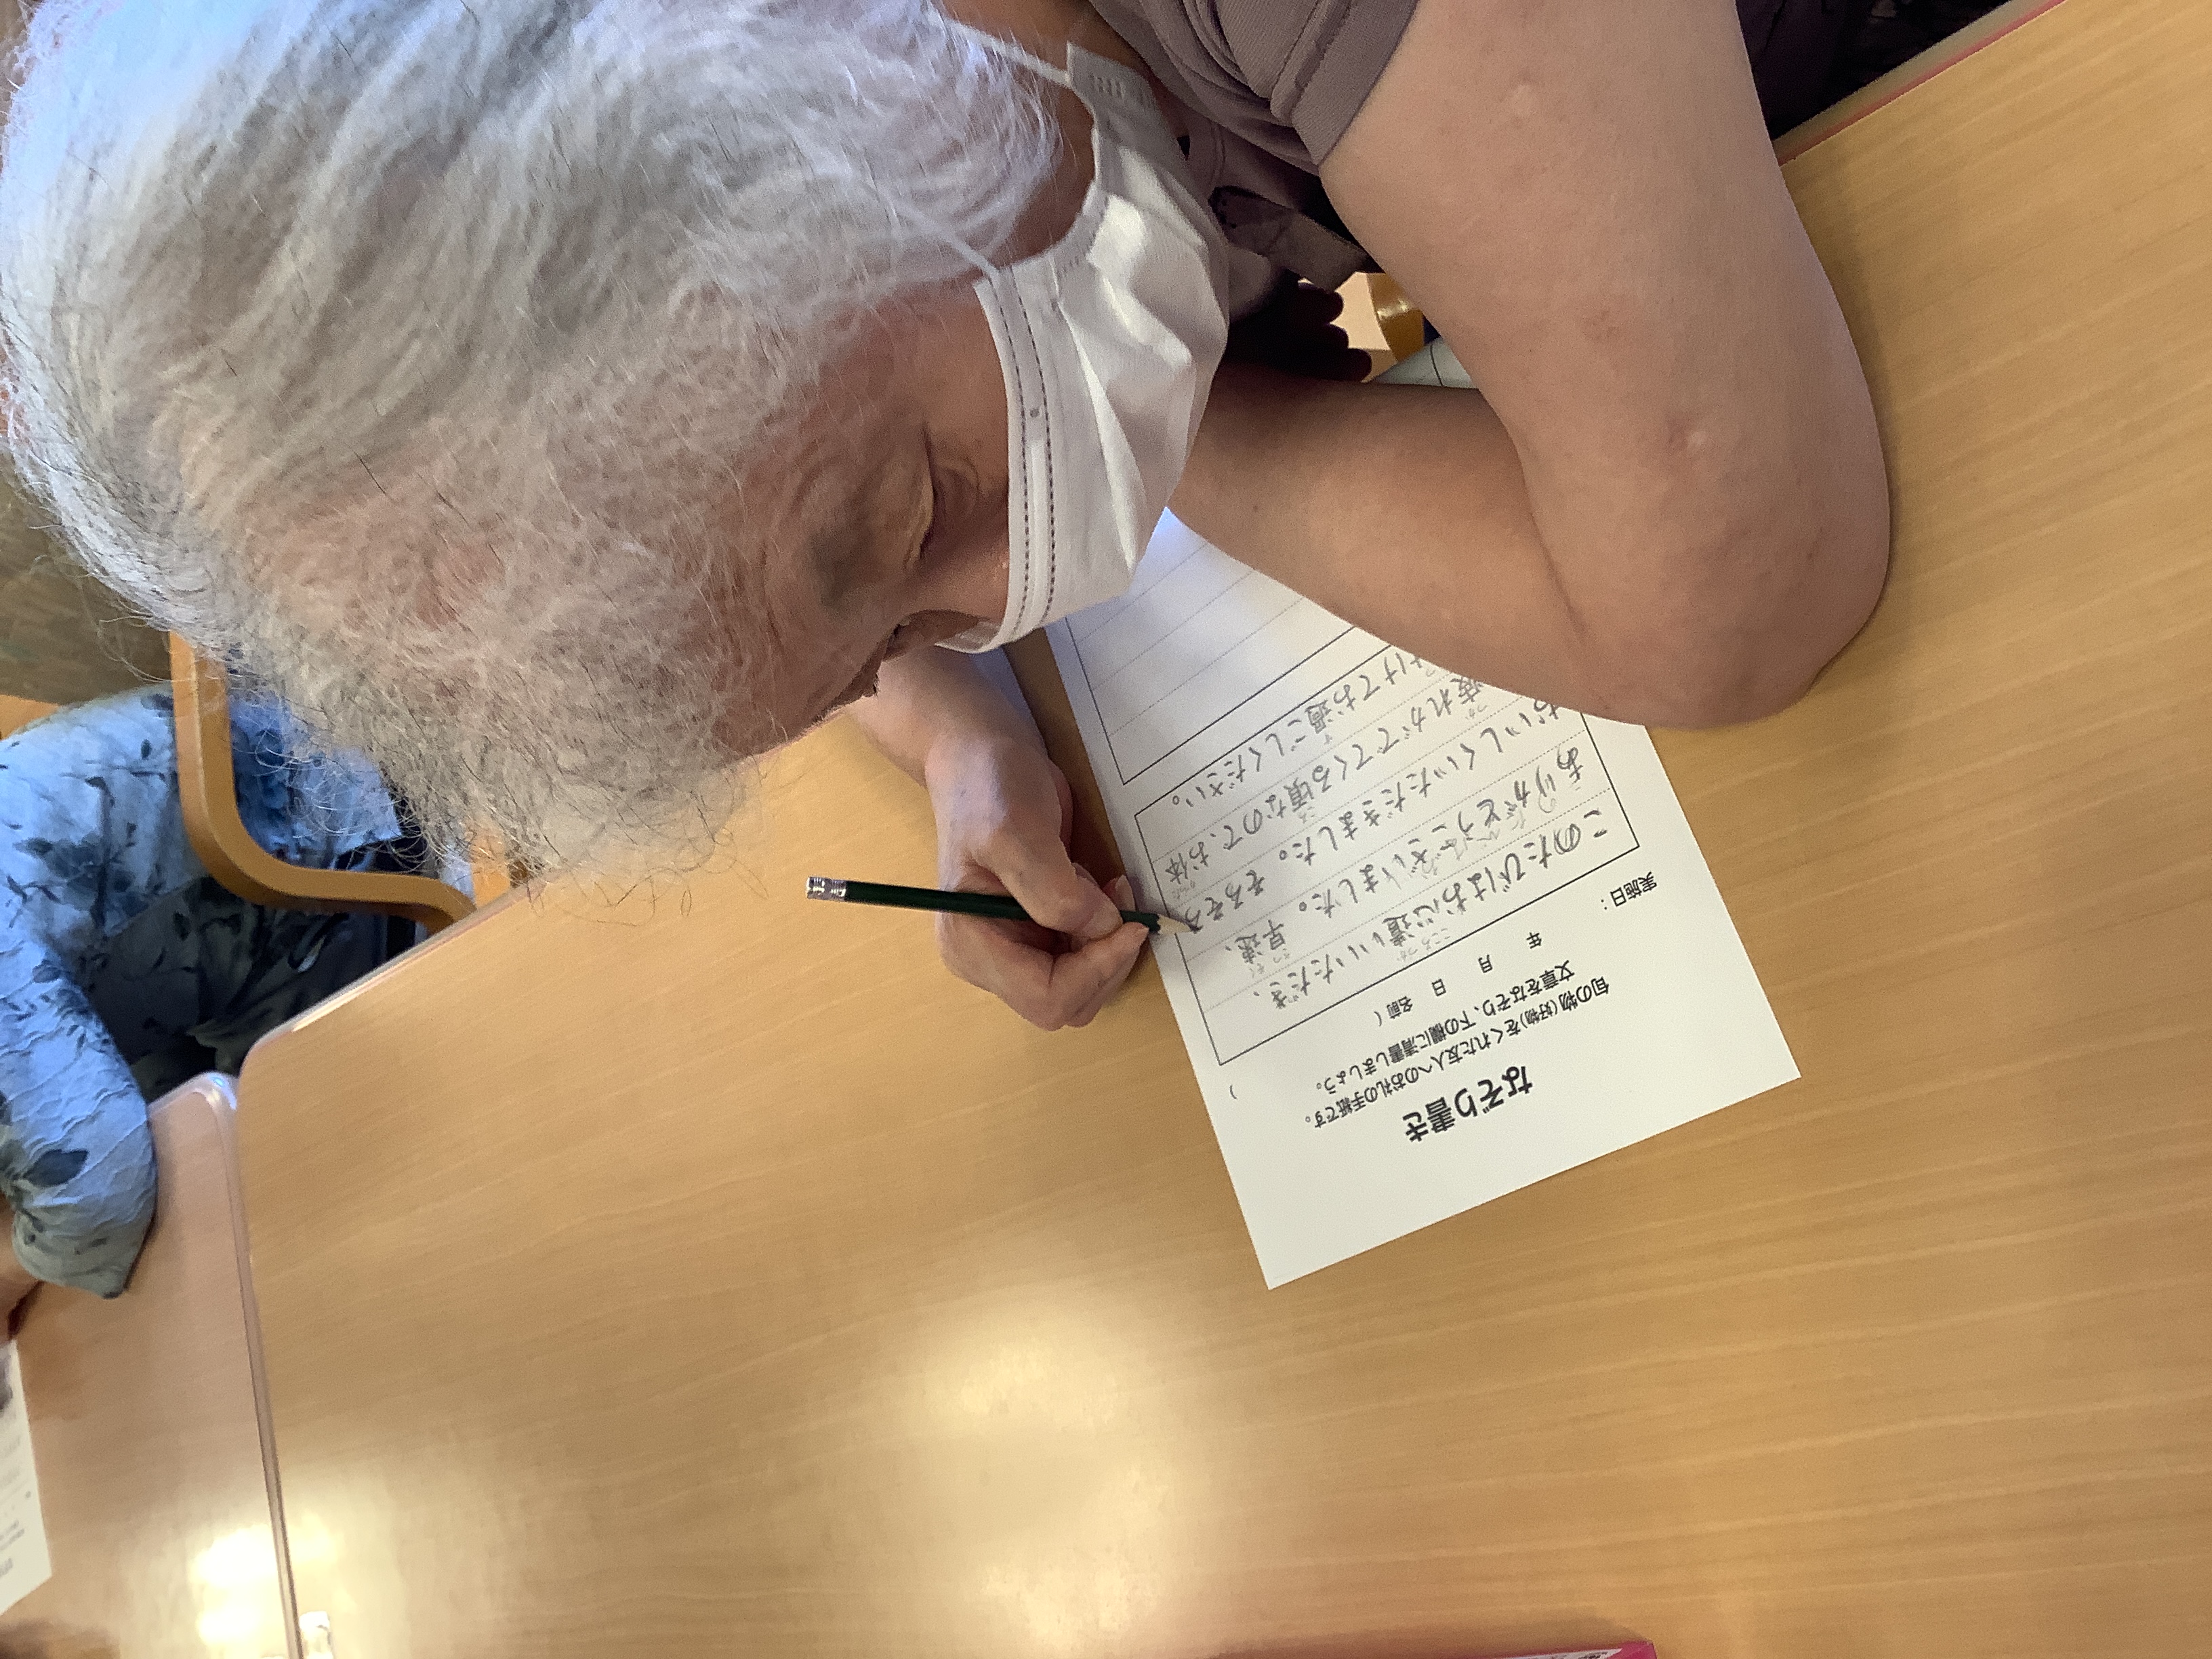 なぞり書き
旬の物(好物)をくれた友人へのお礼の手紙です。
文章をなぞり、下の欄に清書しましょう。
実施日: 年 月 日 名前( )
このたびはお心遣いいただき、
ありがとうございました。早速、
おいしくいただきました。そろそろ
疲れがでてくる頃なので、お体
けてお過ごしください。